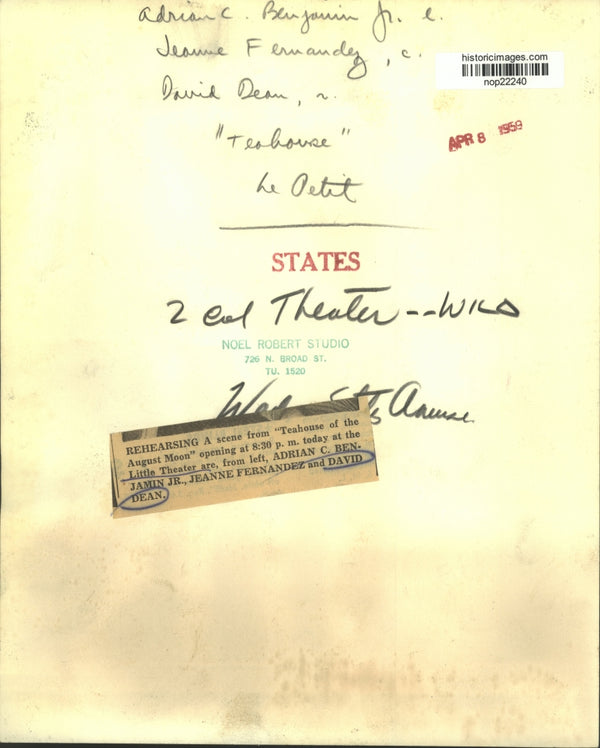 Adrian C. Benjamin Jr. l.
historicimages.com
nop22240
Jeanne Fernandez, c.
David Dean, r.
APR 8 1959
"Teahouse"
Le Petit
STATES
2 col Theater--
NOEL ROBERT STUDIO
726 N. BROAD ST.
TU. 1520
Amuse.
REHEARSING A scene from "Teahouse of the
August Moon" opening at 8:30 p. m. today at the
Little Theater are, from left, ADRIAN C. BEN-
JAMIN JR., JEANNE FERNANDEZ and DAVID
DEAN.